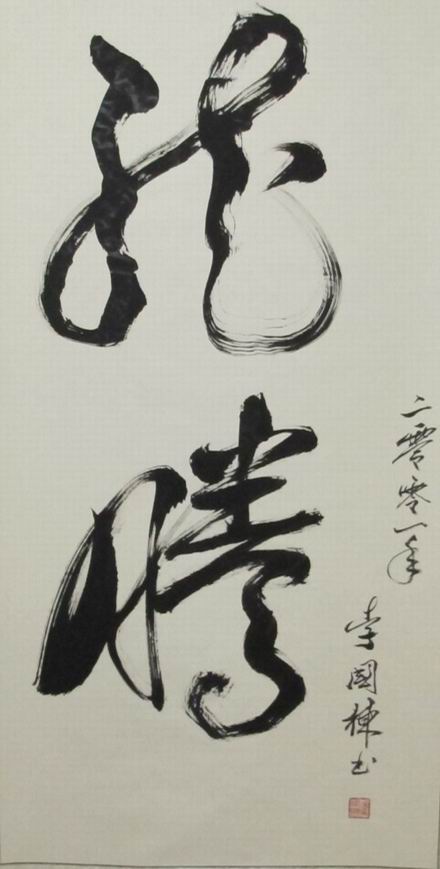 龍騰
二零零一年
李國棟书